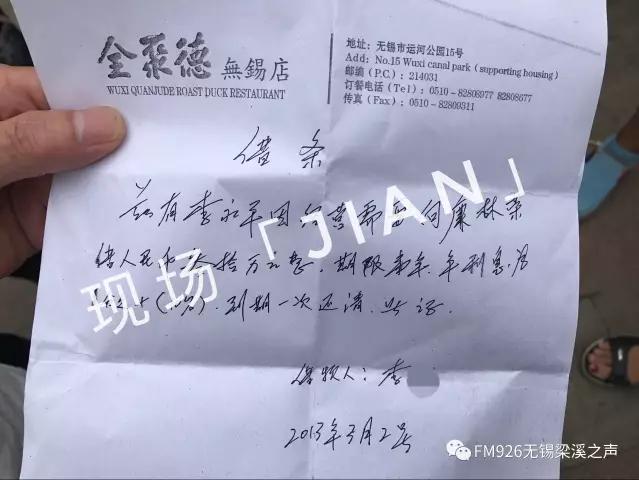 全聚德 無錫店
WUXI QUANJUDE ROAST DUCK RESTAURANT
地址：无锡市运河公园15号
Add: No.15 Wuxi canal park (supporting housing)
邮编（P.C.）：214031
订餐电话（Tel）：0510-82808977 82808677
传真（Fax）：0510-82809311
借条
兹有李永平因经营需要向廉林
借人民币 拾万元整．期限 年．年利息为
到期一次还清．此证．
借款人：李
2013年3月2号
现场「JIAN」
FM926无锡梁溪之声